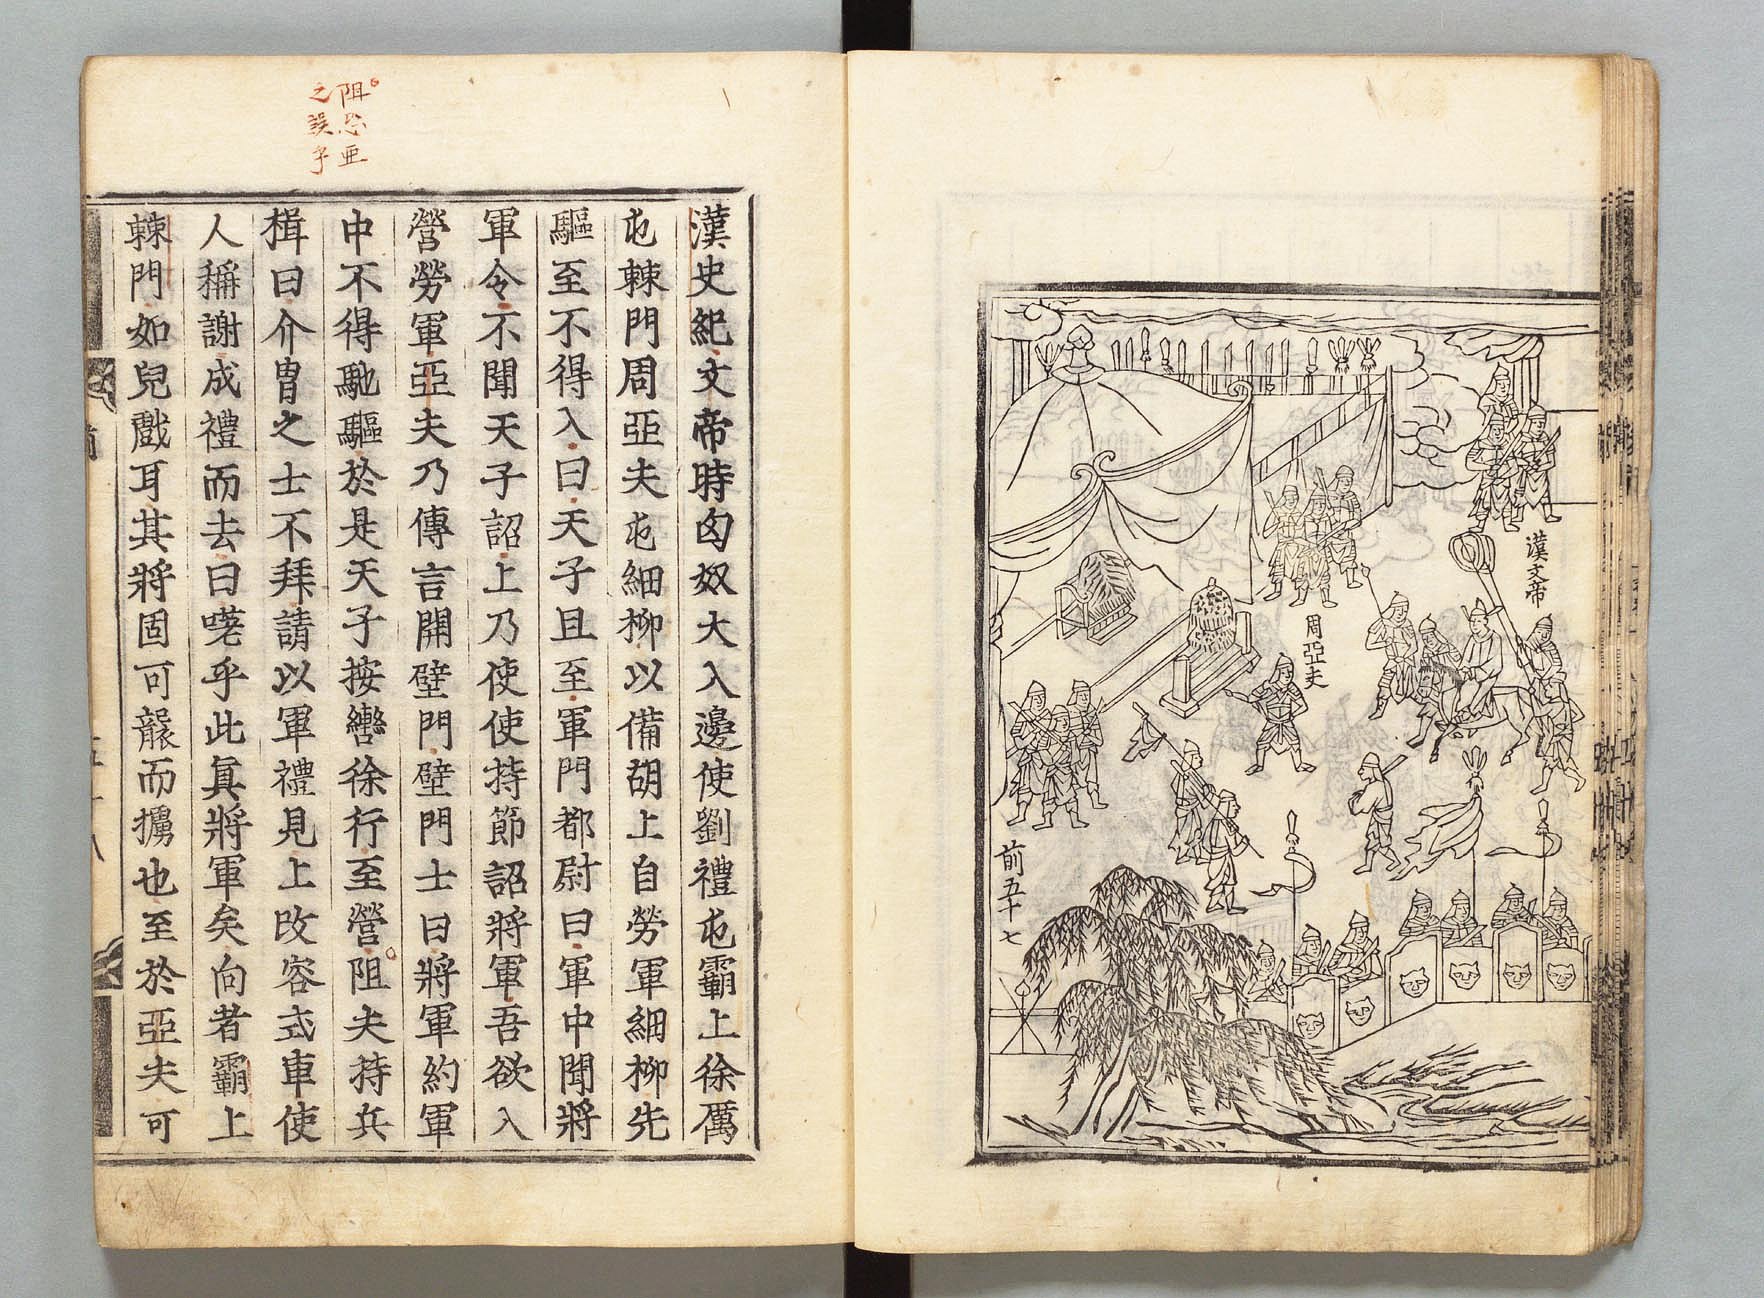 漢文帝
周亞夫
前五十七
阻恐亞
之誤乎
漢史紀文帝時匈奴大入邊使劉禮屯霸上徐厲
屯棘門周亞夫屯細柳以備胡上自勞軍細柳先
驅至不得入曰天子且至軍門都尉曰軍中聞將
軍令不聞天子詔上乃使使持節詔將軍吾欲入
營勞軍亞夫乃傳言開壁門壁門士曰將軍約軍
中不得馳驅於是天子按轡徐行至營阻夫持兵
楫曰介冑之士不拜請以軍禮見上改容式車使
人稱謝成禮而去曰嗟乎此眞將軍矣向者霸上
棘門如兒戲耳其將固可襲而擄也至於亞夫可